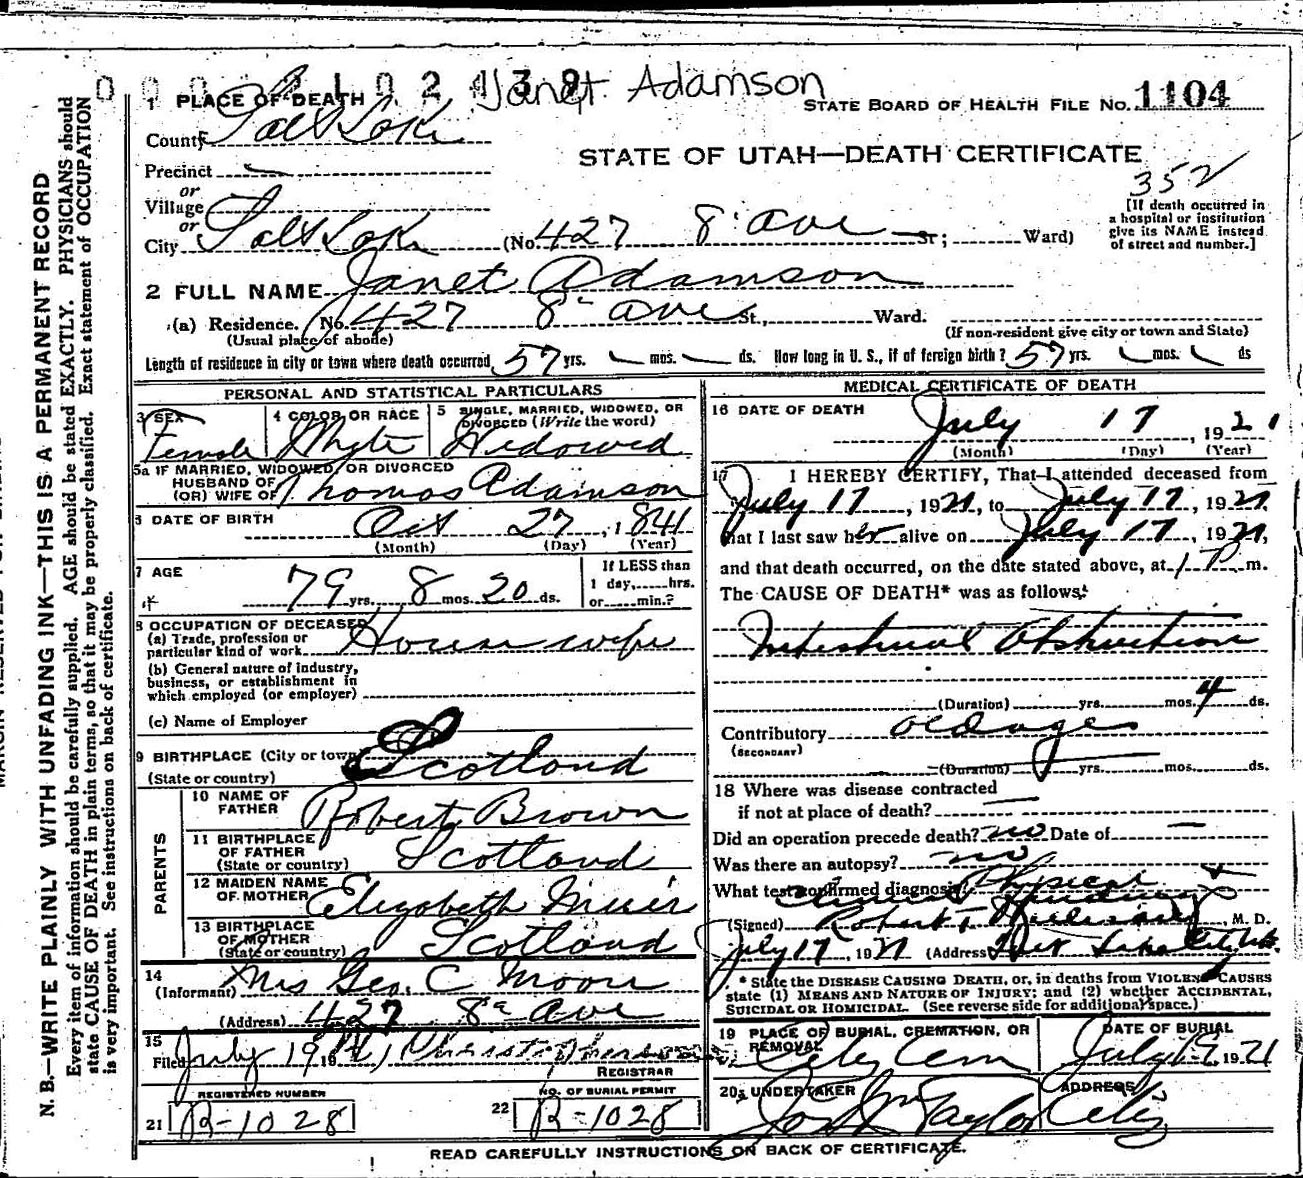 MARGIN RESERVED FOR
N. B.—WRITE PLAINLY WITH UNFADING INK—THIS IS A PERMANENT RECORD
Every item of information should be carefully supplied. AGE should be stated EXACTLY. PHYSICIANS should
state CAUSE OF DEATH in plain terms, so that it may be properly classified. Exact statement of OCCUPATION
is very important. See instructions on back of certificate.
Janet Adamson
1 PLACE OF DEATH
STATE BOARD OF HEALTH FILE NO. 1104
County Salt Lake
STATE OF UTAH—DEATH CERTIFICATE
352
Precinct
or
Village
or
City Salt Lake (No. 427 8' ave St; Ward)
[If death occurred in
a hospital or institution
give its NAME instead
of street and number.]
2 FULL NAME Janet Adamson
(a) Residence. No. 427 8" ave St., Ward.
(Usual place of abode) (If non-resident give city or town and State)
Length of residence in city or town where death occurred 57 yrs. mos. ds. How long in U. S., if of foreign birth? 57 yrs. mos. ds
PERSONAL AND STATISTICAL PARTICULARS
3 SEX Female
4 COLOR OR RACE Whyte
5 SINGLE, MARRIED, WIDOWED, OR
DIVORCED (Write the word)
Widowed
5a IF MARRIED, WIDOWED, OR DIVORCED
HUSBAND OF
(OR) WIFE OF Thomas Adamson
6 DATE OF BIRTH Oct 27, 1841
(Month) (Day) (Year)
7 AGE 79 yrs. 8 mos. 20 ds.
If LESS than
1 day,.....hrs.
or.....min.?
8 OCCUPATION OF DECEASED
(a) Trade, profession or
particular kind of work House wife
(b) General nature of industry,
business, or establishment in
which employed (or employer)
(c) Name of Employer
9 BIRTHPLACE (City or town)
(State or country) Scotland
PARENTS
10 NAME OF
FATHER Robert Brown
11 BIRTHPLACE
OF FATHER
(State or country) Scotland
12 MAIDEN NAME
OF MOTHER Elizabeth Muir
13 BIRTHPLACE
OF MOTHER
(State or country) Scotland
14
(Informant) Mrs Geo. C Moore
(Address) 427 8" Ave
15
Filed July 19 19
REGISTRAR
REGISTERED NUMBER
21 B-1028
NO. OF BURIAL PERMIT
22 B-1028
MEDICAL CERTIFICATE OF DEATH
16 DATE OF DEATH
July 17, 1921
(Month) (Day) (Year)
17 I HEREBY CERTIFY, That I attended deceased from
July 17, 1921, to July 17, 1921
that I last saw her alive on July 17, 1921,
and that death occurred, on the date stated above, at 1 P. m.
The CAUSE OF DEATH* was as follows:
Intestinal Obstruction
(Duration) yrs. mos. 4 ds.
Contributory old age
(SECONDARY)
(Duration) yrs. mos. ds.
18 Where was disease contracted
if not at place of death?
Did an operation precede death? no Date of
Was there an autopsy? no
What test confirmed diagnosis? Physical
(Signed) Robert, M. D.
July 17, 1921 (Address) Salt Lake City
* State the DISEASE CAUSING DEATH, or, in deaths from VIOLENT CAUSES
state (1) MEANS AND NATURE OF INJURY; and (2) whether ACCIDENTAL,
SUICIDAL OR HOMICIDAL. (See reverse side for additional space.)
19 PLACE OF BURIAL, CREMATION, OR
REMOVAL
City Cem
DATE OF BURIAL
July 19, 1921
20 UNDERTAKER
Jos Wm Taylor
ADDRESS
City
READ CAREFULLY INSTRUCTIONS ON BACK OF CERTIFICATE.